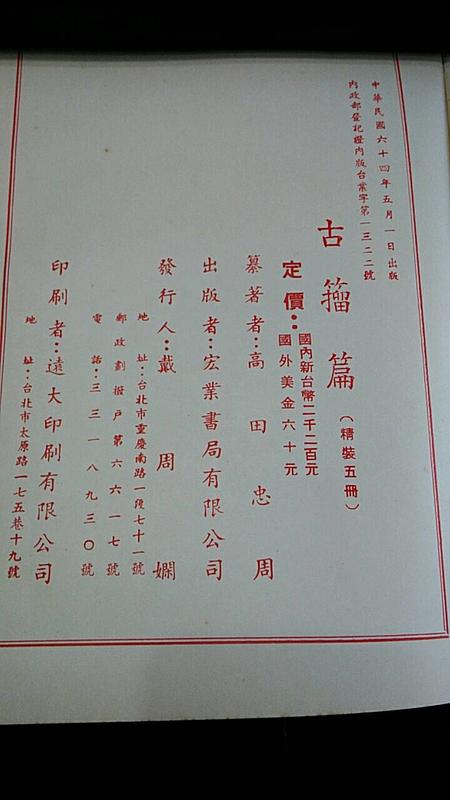 中華民國六十四年五月一日出版
內政部登記證內版台業字第一三二二號
古籀篇（精裝五冊）
定價：國內新台幣二千二百元
國外美金六十元
纂著者：高田忠周
出版者：宏業書局有限公司
發行人：戴周嫻
地址：台北市重慶南路一段七十一號
郵政劃撥戶第六六一七號
電話：三三一八九三〇號
印刷者：遠大印刷有限公司
地址：台北市太原路一七五巷十九號